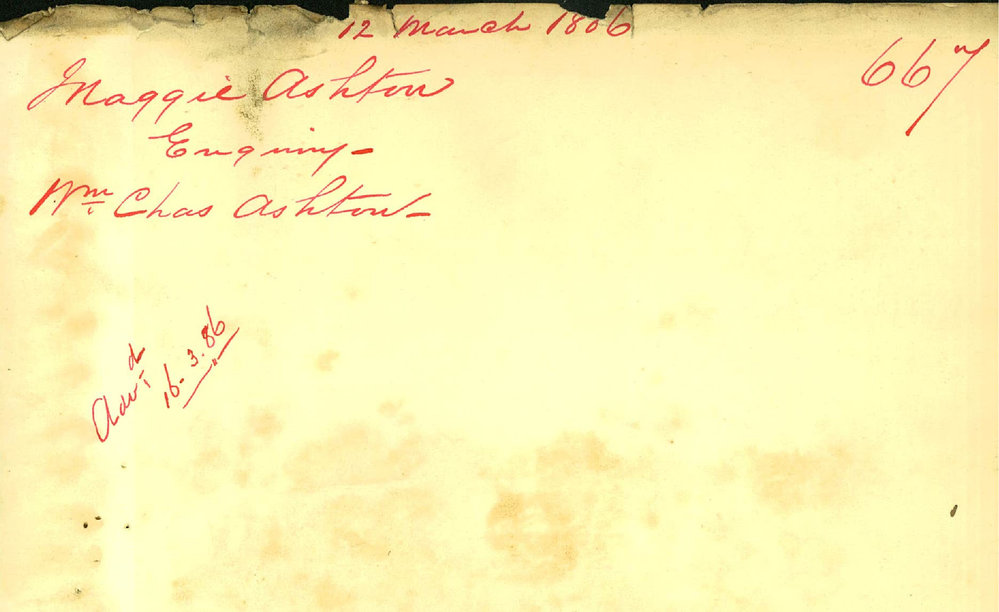 12 March 1886
667
Maggie Ashton
Enquiry -
Wm Chas Ashton -
Adv'd
16 - 3. 86